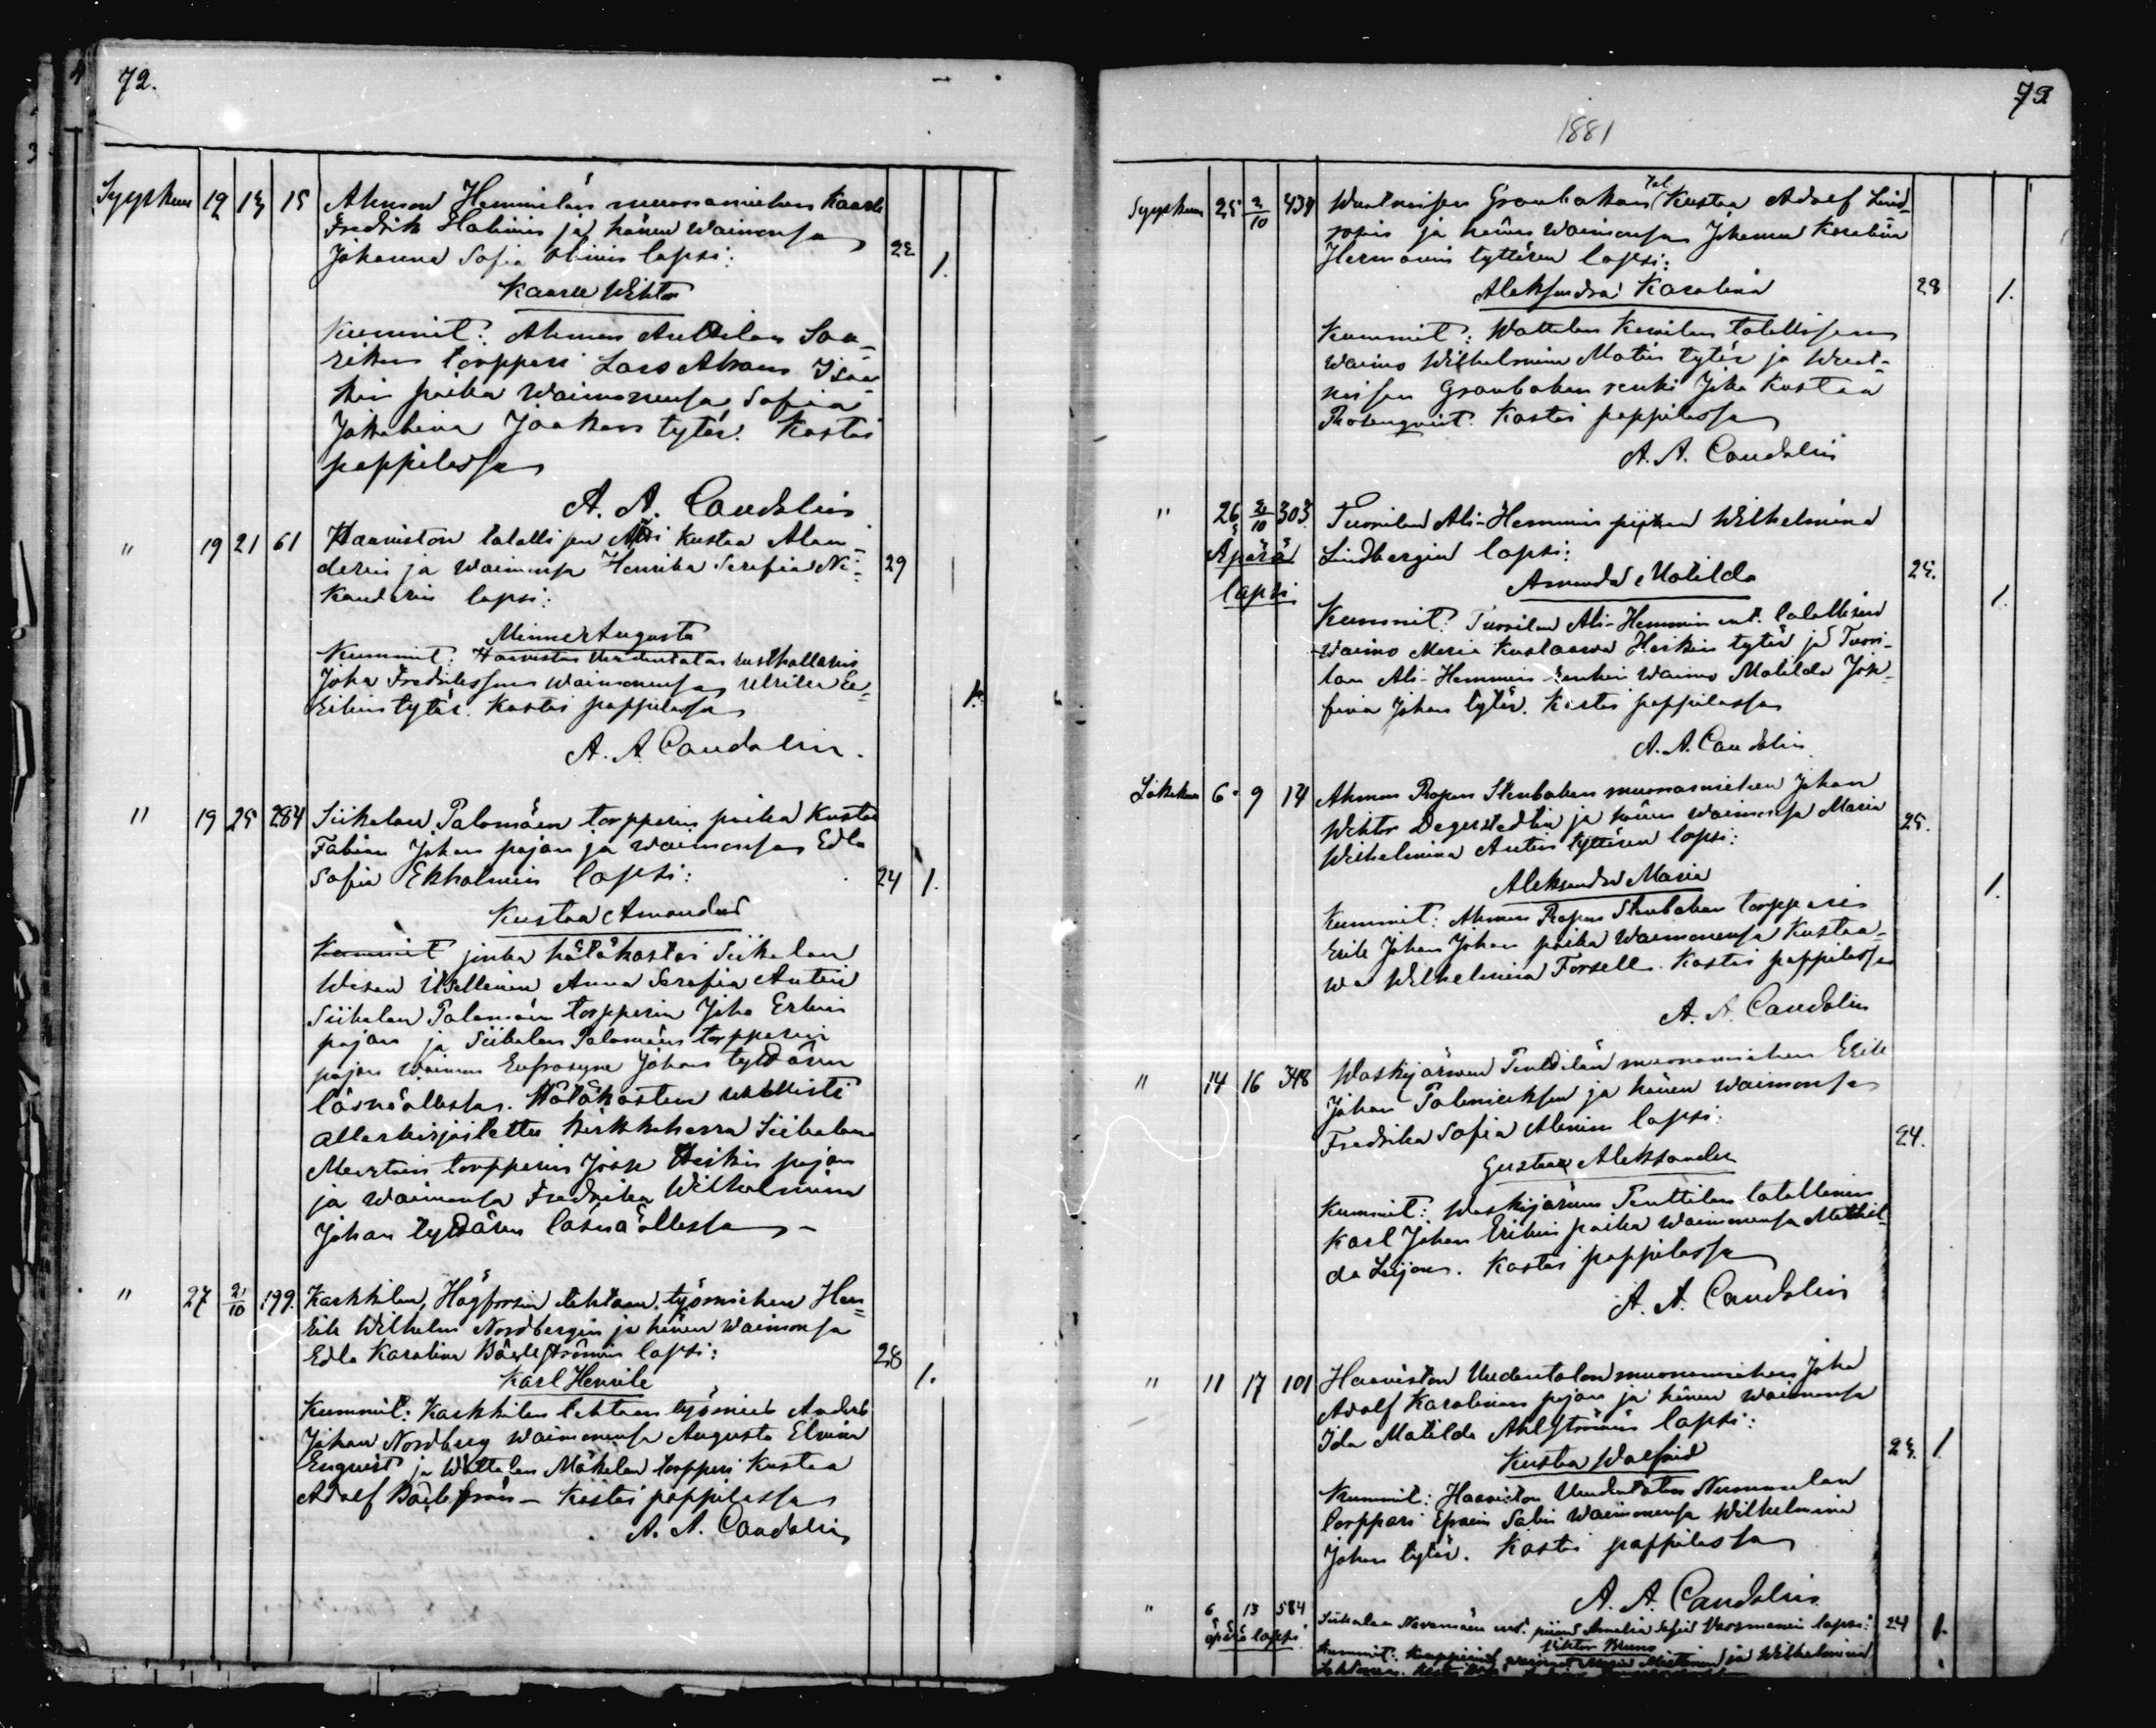 72.
Syyskuu 19 13 15 Ahmon Hemmilän muonamiehen Kaarle
Fredrik Halinin ja hänen waimonsa
Johanna Sofia lapsi: 22 1.
Kaarle Wihtor
Kummit: Ahmon Anttilan Saa-
riken torppari Lars Abram Isaa-
kin poika waimonensa Sofia
Jakobina Jaakon tytär. Kastoi
pappilassa
A. A. Candolin
" 19 21 61 Haaviston talollisen Kustaa Alan-
derin ja waimonsa Henrika Serafia Ni- 29
kanderin lapsi:
Minna Augusta
Kummit: Haaviston Uudentalon rusthollarin
Joha Fredrikssonin waimonensa Ulrika Ee-
rikin tytär. Kastoi pappilassa 1.
A. A. Candolin.
" 19 25 284 Siikalan Palomäen torpparin poika Kustaa
Fabian Johan pojan ja waimonsa Edla
Sofia Ekholmin lapsi: 24 1.
Kustaa Amandus
Kummit jonka hätäkastoi Siikalan
Anna Serafia Antin
Siikalan Palomäen torpparin Joha Erkin
pojan ja Siikalan Palomäen torpparin
pojan waimon Eufrosyne Johan tyttären
läsnäollessa. Hätäkasteen wahwisti
allekirjoitettu kirkkoherra Siikalan
torpparin Joose Heikin pojan
ja waimonsa Fredrika Wilhelmina
Johan tyttären läsnäollessa -
" 27 2/10 199. Karkkilan, Högforsin tehtaan työmiehen Hen-
rik Wilhelm Nordbergin ja hänen waimonsa
Edla Karolina Bäckströmin lapsi: 28
Karl Henrik 1.
Kummit: Karkkilan tehtaan työmies Anders
Johan Nordberg waimonensa Augusta Elvira
Enqvist ja Wattolan Mäkelän torppari Kustaa
Adolf Bäckström - Kastoi pappilassa
A. A. Candolin
73
1881
Syyskuu 25 2/10 434 Granbakan Kustaa Adolf Lind-
ja hänen waimonsa Johanna Karolina
Hermanin tyttären lapsi:
Aleksandra Karolina 28 1.
Kummit: Wattolan talollisen
waimo Wilhelmina Matin tytär ja
Granbakan renki Joha Kustaa
Rosenqvist. Kastoi pappilassa
A. A. Candolin
" 26 2/10 303. Tuorilan Ali-Hemmin piijan Wilhelmina
Äpärä Lindbergin lapsi:
lapsi Amanda Matilda 25.
Kummit: Tuorilan Ali-Hemmin ent. talollisen 1.
waimo Maria Kustaawa Heikin tytär ja Tuori-
lan Ali-Hemmin renkin waimo Matilda Jose-
fina Johan tytär. Kastoi pappilassa
A. A. Candolin
Lokakuu 6. 9 14 Ahmon Stenbakan muonamiehen Johan
Wihtor Degerstedtin ja hänen waimonsa Maria 25.
Wilhelmina Antin tyttären lapsi:
Aleksandra Maria 1.
Kummit: Ahmon Stenbakan torpparin
Erik Johan Johan poika waimonensa Kustaa-
wa Wilhelmina Forsell. Kastoi pappilassa
A. A. Candolin
" 14 16 348 Waskijärwen Penttilän muonamiehen Erik
Johan ja hänen waimonsa
Fredrika Sofia Alenin lapsi: 24.
Gustaa Aleksander
Kummit: Waskijärwen Penttilän talollinen
Karl Johan Erikin poika waimonensa Mathil-
da Leijon. Kastoi pappilassa
A. A. Candolin
" 11 17 101 Haaviston Uudentalon muonamiehen Joha
Adolf Karolinan pojan ja hänen waimonsa
Ida Matilda Ahlströmin lapsi:
Kustaa Walfrid 23. 1
Kummit: Haaviston Uudentalon Nummelan
torppari Efraim Salin waimonensa Wilhelmina
Johan tytär. Kastoi pappilassa
A. A. Candolin
" 6 13 584 Siikalan Nevanmäen ent. piian Amelia Sofia lapsi: 24 1.
äpärä lapsi Viktor Bruno
Kummit: ja Wilhelmina